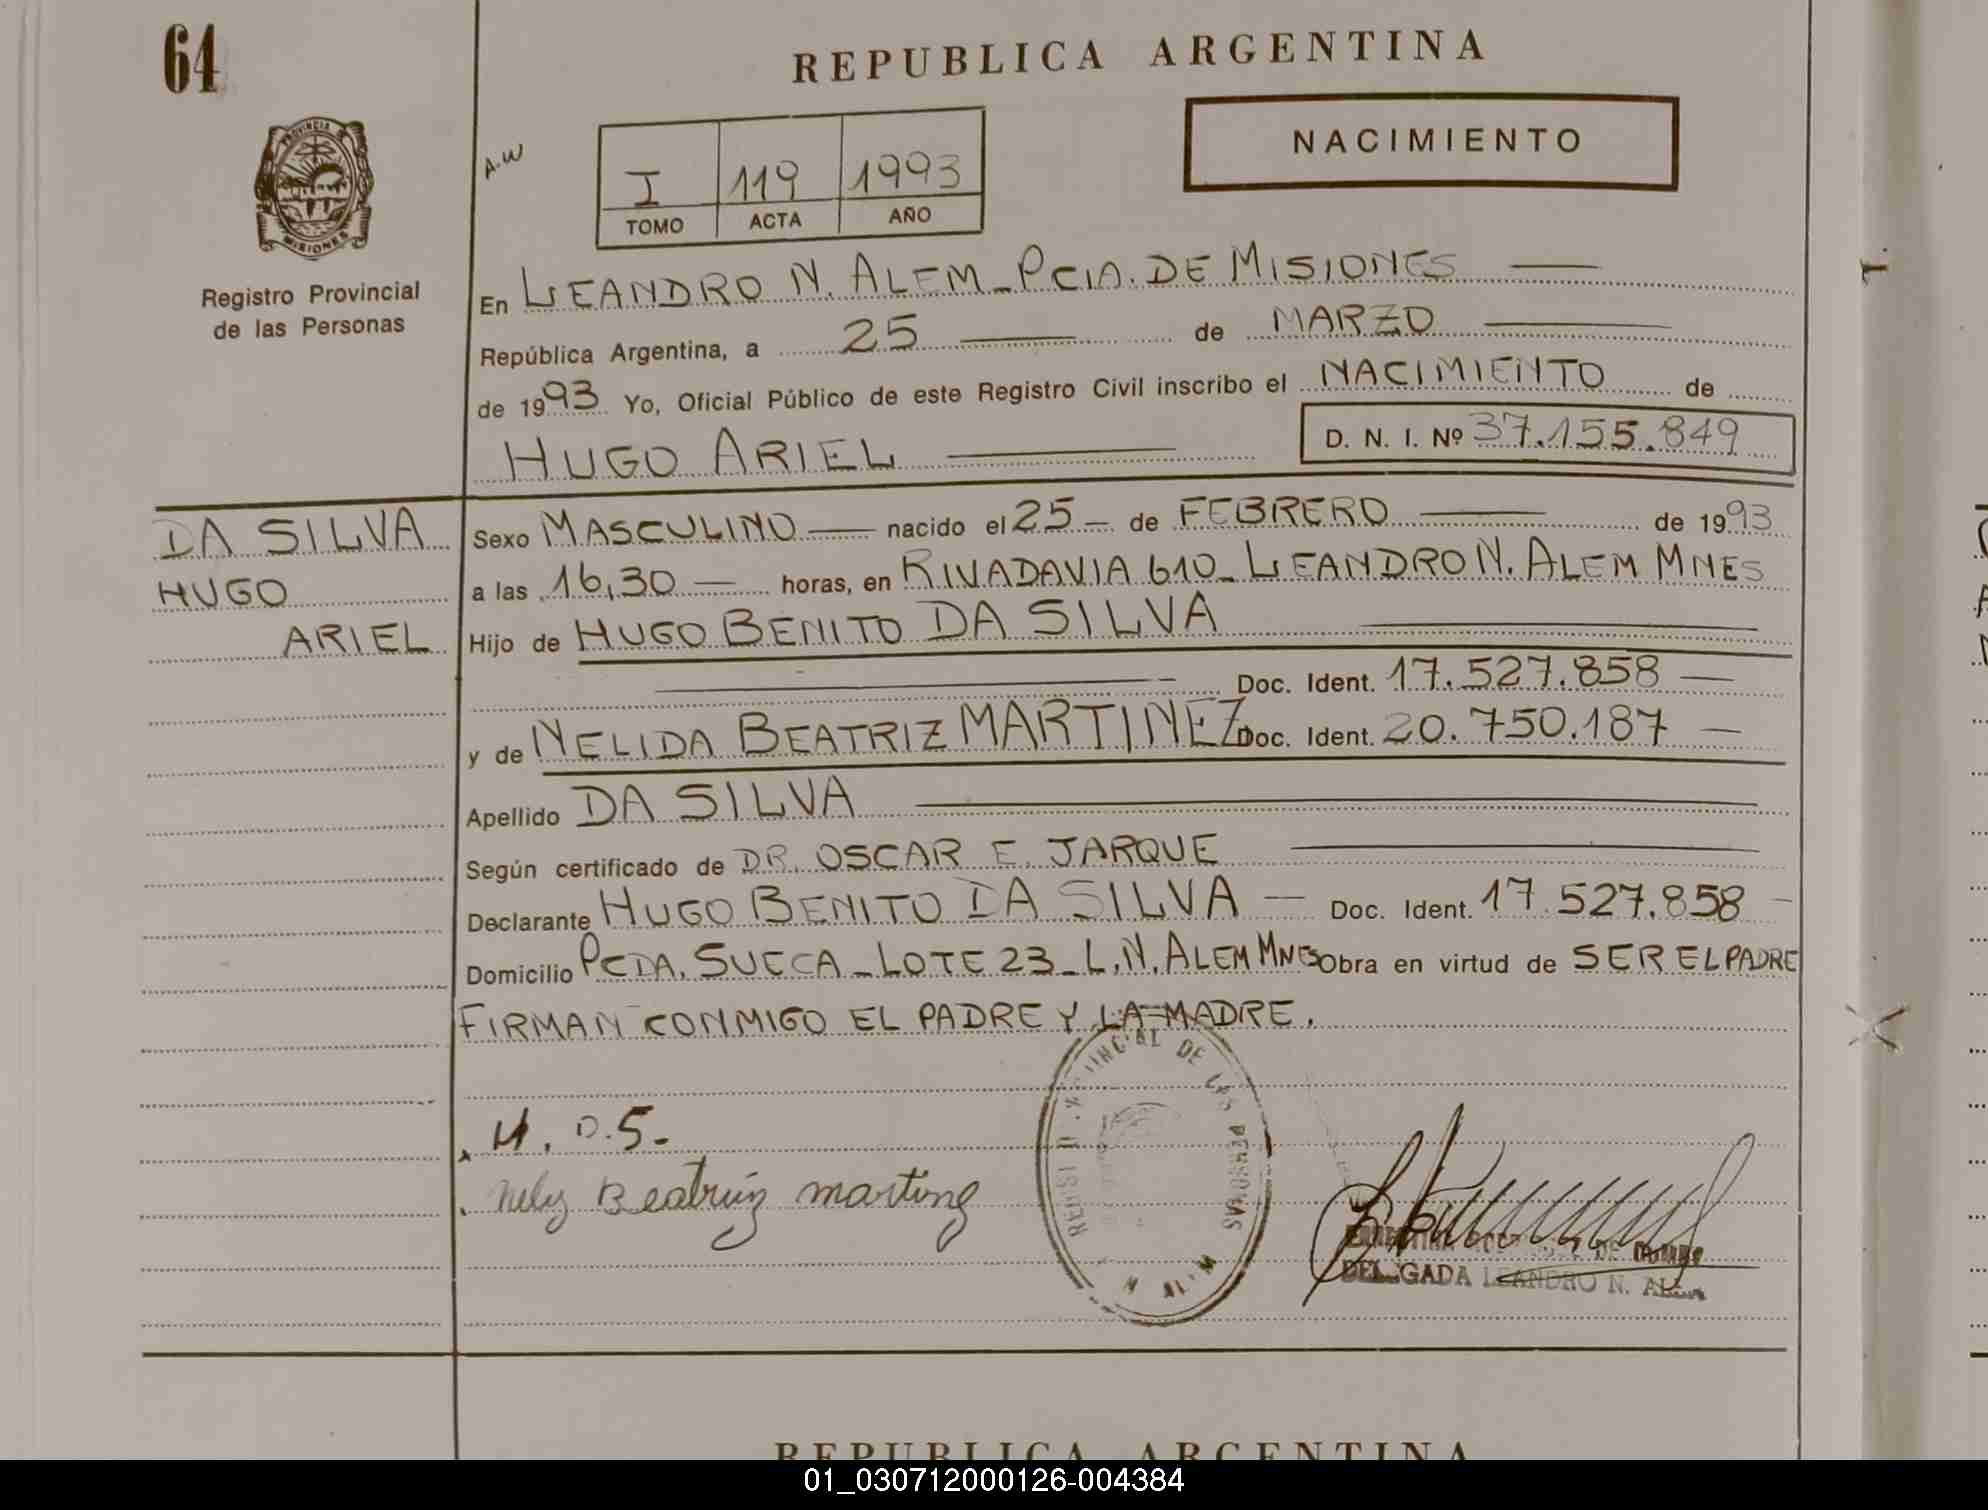 64
REPUBLICA ARGENTINA
NACIMIENTO
A.W
I 119 1993
TOMO ACTA AÑO
PROVINCIA DE
MISIONES
Registro Provincial
de las Personas
En LEANDRO N. ALEM_PCIA. DE MISIONES
República Argentina, a 25 de MARZO
de 1993 Yo, Oficial Público de este Registro Civil inscribo el NACIMIENTO de
HUGO ARIEL D. N. I. Nº 37.155.849
DA SILVA
HUGO
ARIEL
Sexo MASCULINO nacido el 25 de FEBRERO de 1993
a las 16,30 horas, en RIVADAVIA 610_LEANDRO N. ALEM MNES
Hijo de HUGO BENITO DA SILVA
Doc. Ident. 17.527.858
y de NELIDA BEATRIZ MARTINEZ Doc. Ident. 20.750.187
Apellido DA SILVA
Según certificado de DR. OSCAR E. JARQUE
Declarante HUGO BENITO DA SILVA Doc. Ident. 17.527.858
Domicilio PCDA. SUECA_LOTE 23_L.N.ALEM MNES Obra en virtud de SER EL PADRE
FIRMAN CONMIGO EL PADRE Y LA MADRE.
H. D.S.
Nely Beatriz martinez
DE LAS PERSONAS
LEANDRO N. ALEM
REPUBLICA ARGENTINA
01_030712000126-004384